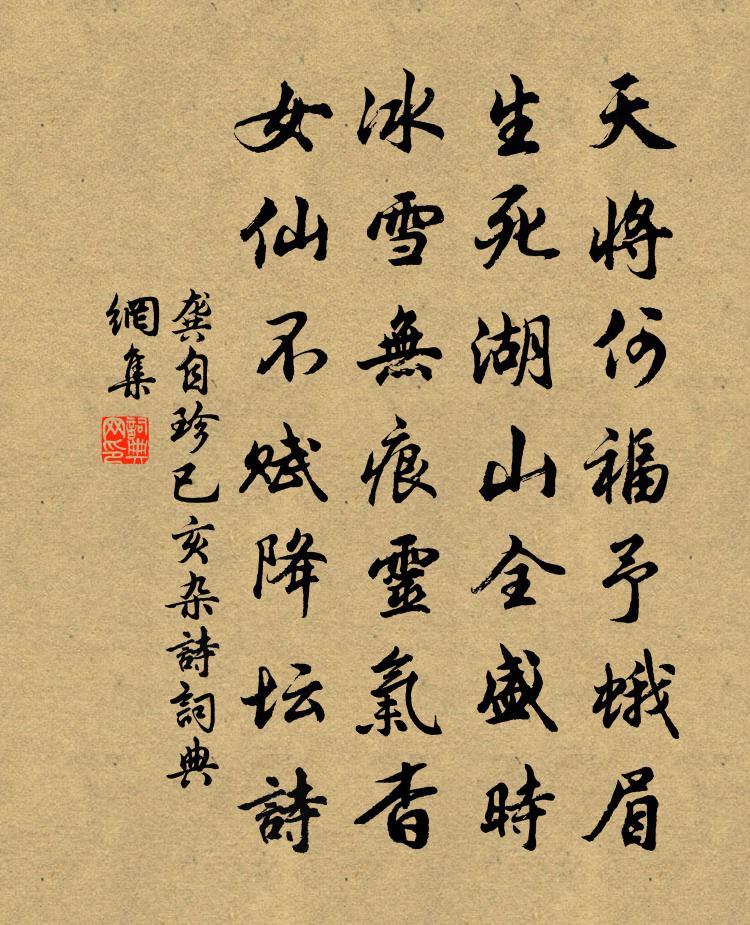 天將何福予蛾眉
生死湖山全盛時
冰雪無痕靈氣杳
女仙不赋降坛詩
龔自珍己亥杂詩詞典
網集
詞典
网印